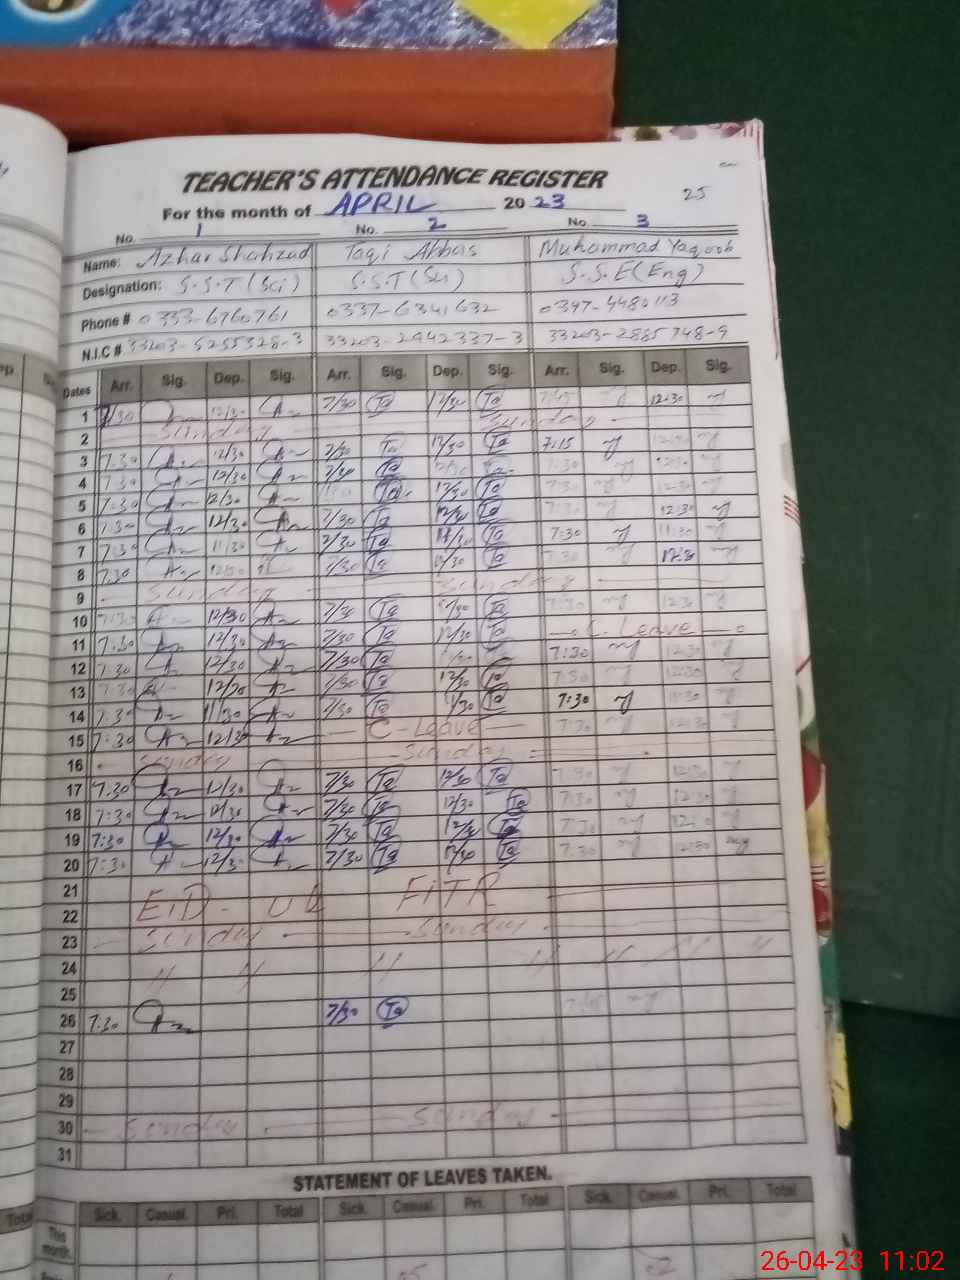 TEACHER'S ATTENDANCE REGISTER
25
For the month of APRIL 2023
No. 1 No. 2 No. 3
Name: Azhar Shahzad Taqi Abbas Muhammad Yaqoob
Designation: S.S.T (Sci) S.S.T (Sci) S.S.E (Eng)
Phone # 0333-6760761 0337-6341632 0347-4480113
N.I.C # 33203-5255328-3 33203-2942337-3 33203-2885748-9
Dates Arr. Sig. Dep. Sig. Arr. Sig. Dep. Sig. Arr. Sig. Dep. Sig.
1 7/30 12/30 7/30 Ta 12/30 Ta 7:45 12:30
2 Sunday Sunday
3 7:30 12/30 7/30 Ta 12/30 Ta 7:15
4 7:30 12/30 7/30 Ta 12/30 Ta 7:30 12:30
5 7:30 12/30 Ta 12/30 Ta 7:30 12:30
6 7:30 12/30 7/30 Ta 12/30 Ta 7:30 12:30
7 7:30 11/30 7/30 Ta 11/30 Ta 7:30 11:30
8 7:30 7/30 Ta 12/30 Ta 7:30 12:30
9 Sunday Sunday
10 7:30 12/30 7/30 Ta Ta 7:30 12:30
11 7:30 12/30 7/30 Ta 12/30 Ta C. Leave
12 7:30 12/30 7/30 Ta Ta 7:30 12:30
13 7:30 12/30 7/30 Ta 12/30 Ta 7:30 12:30
14 7:30 11/30 7/30 Ta Ta 7:30
15 7:30 12/30 C-Leave 7:30 12:30
16 Sunday Sunday
17 7:30 12/30 7/30 Ta 12/30 Ta 7:30 12:30
18 7:30 12/30 7/30 Ta 12/30 Ta 7:30 12:30
19 7:30 12/30 7/30 Ta 12/30 Ta 7:30 12:30
20 7:30 12/30 7/30 Ta 12/30 Ta 7:30 12:30
21
22 EiD-ul FiTR
23 Sunday Sunday
24 " " " " " " "
25
26 7:30 7/30 Ta
27
28
29
30 Sunday Sunday
31
STATEMENT OF LEAVES TAKEN.
Sick. Casual. Pri. Total Sick. Casual. Pri. Total Sick. Casual. Pri. Total
This month.
05 02
26-04-23 11:02